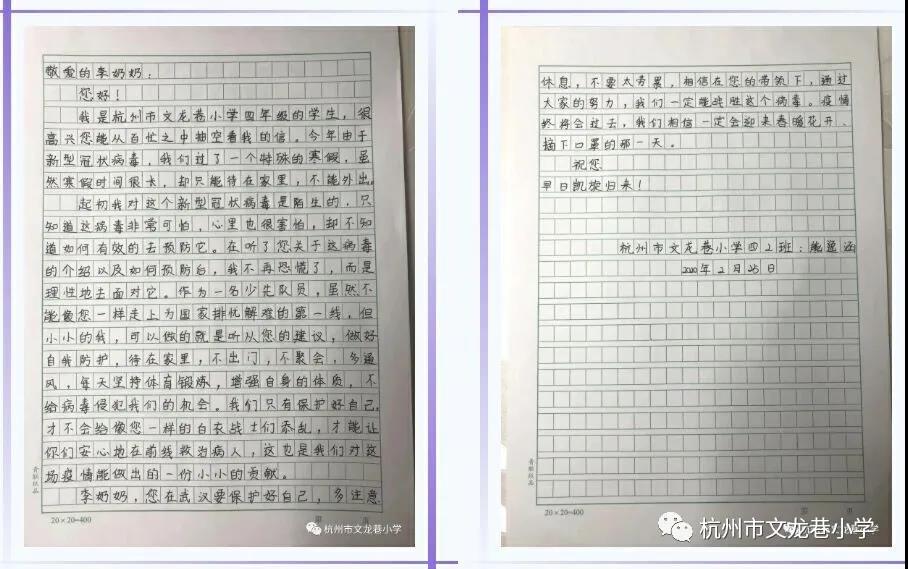 敬爱的李奶奶：
您好！
我是杭州市文龙巷小学四年级的学生，很
高兴您能从百忙之中抽空看我的信。今年由于
新型冠状病毒，我们过了一个特殊的寒假，虽
然寒假时间很长，却只能待在家里，不能外出。
起初我对这个新型冠状病毒是陌生的，只
知道这病毒非常可怕，心里也很害怕，却不知
道如何有效的去预防它。在听了您关于这病毒
的介绍以及如何预防后，我不再恐慌了，而是
理性地去面对它。作为一名少先队员，虽然不
能像您一样走上为国家排忧解难的第一线，但
小小的我，可以做的就是听从您的建议，做好
自我防护，待在家里，不出门，不聚会，多通
风，每天坚持体育锻炼，增强自身的体质，不
给病毒侵犯我们的机会。我们只有保护好自己，
才不会给像您一样的白衣战士们添乱，才能让
你们安心地在前线救治病人，这也是我们对这
场疫情能做出的一份小小的贡献。
李奶奶，您在武汉要保护好自己，多注意
20×20=400
页
杭州市文龙巷小学
休息，不要太劳累，相信在您的带领下，通过
大家的努力，我们一定能战胜这个病毒。疫情
终将会过去，我们相信一定会迎来春暖花开、
摘下口罩的那一天。
祝您
早日凯旋归来！
杭州市文龙巷小学四2班：熊逸涵
2020年2月25日
20×20=400
杭州市文龙巷小学